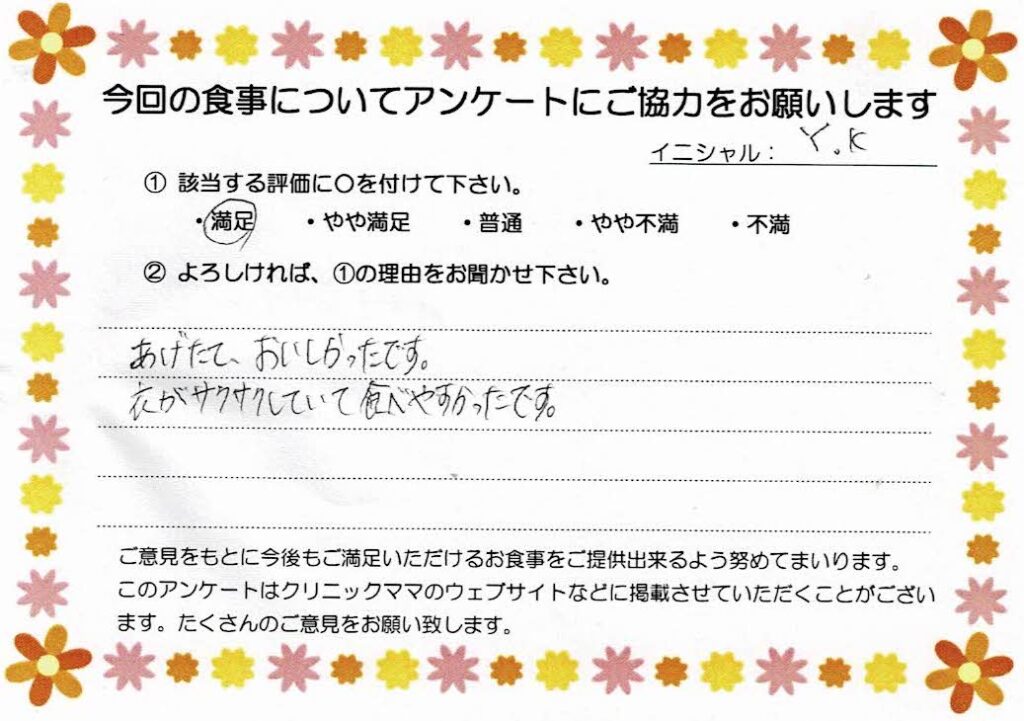 今回の食事についてアンケートにご協力をお願いします
イニシャル： Y.K
① 該当する評価に〇を付けて下さい。
・満足 ・やや満足 ・普通 ・やや不満 ・不満
② よろしければ、①の理由をお聞かせ下さい。
あげたて、おいしかったです。
衣がサクサクしていて食べやすかったです。
ご意見をもとに今後もご満足いただけるお食事をご提供出来るよう努めてまいります。
このアンケートはクリニックママのウェブサイトなどに掲載させていただくことがござい
ます。たくさんのご意見をお願い致します。